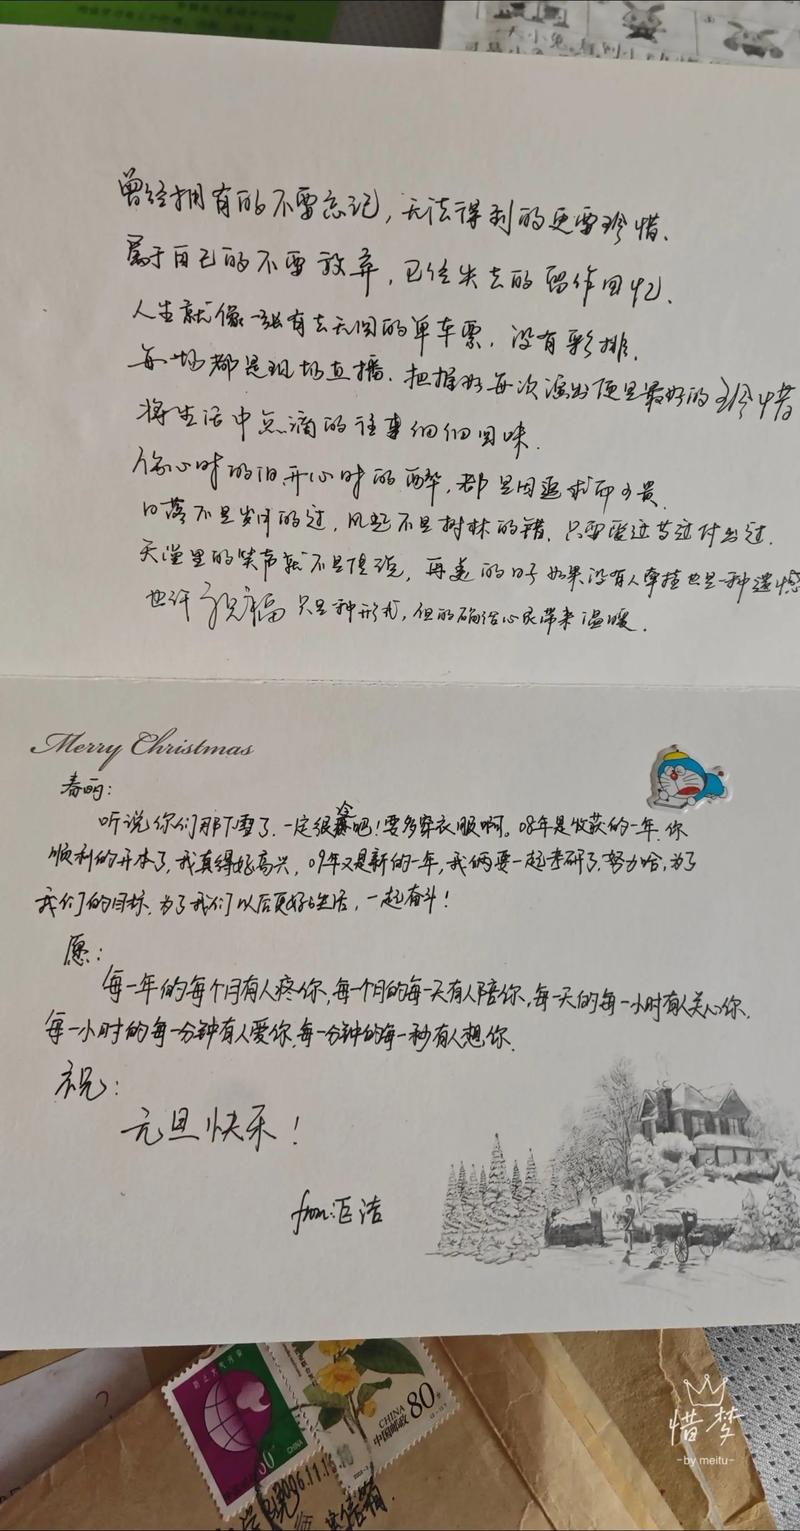 大小兔
曾经拥有的不要忘记，无法得到的更要珍惜、
属于自己的不要放弃，已经失去的留作回忆、
人生就像一张有去无回的单车票，没有彩排、
每一场都是现场直播、把握好每次演出便是最好的珍惜
将生活中点滴的往事细细回味、
伤心时的泪、开心时的醉，都是因追求而可贵、
日落不是岁月的过，风起不是树林的错、只要爱过等过付出过、
天堂里的笑声就不是传说，再美的日子如果没有人牵挂也是一种遗憾
也许祝福只是种形式，但的确给心灵带来温暖、
Merry Christmas
春丽：
听说你们那下雪了、一定很冷吧！要多穿衣服啊。08年是收获的一年、你
顺利的升本了，我真得好高兴，09年又是新的一年，我俩要一起考研了、努力哈，为了
我们的目标、为了我们以后更好的生活，一起奋斗！
愿：
每一年的每个月有人疼你，每一个月的每一天有人陪你，每一天的每一小时有人关心你、
每一小时的每一分钟有人爱你、每一分钟的每一秒有人想你、
祝：
元旦快乐！
from：洁
CHINA
中国邮政
80
CHINA
2006.11.16.10
惜梦
-by meitu-